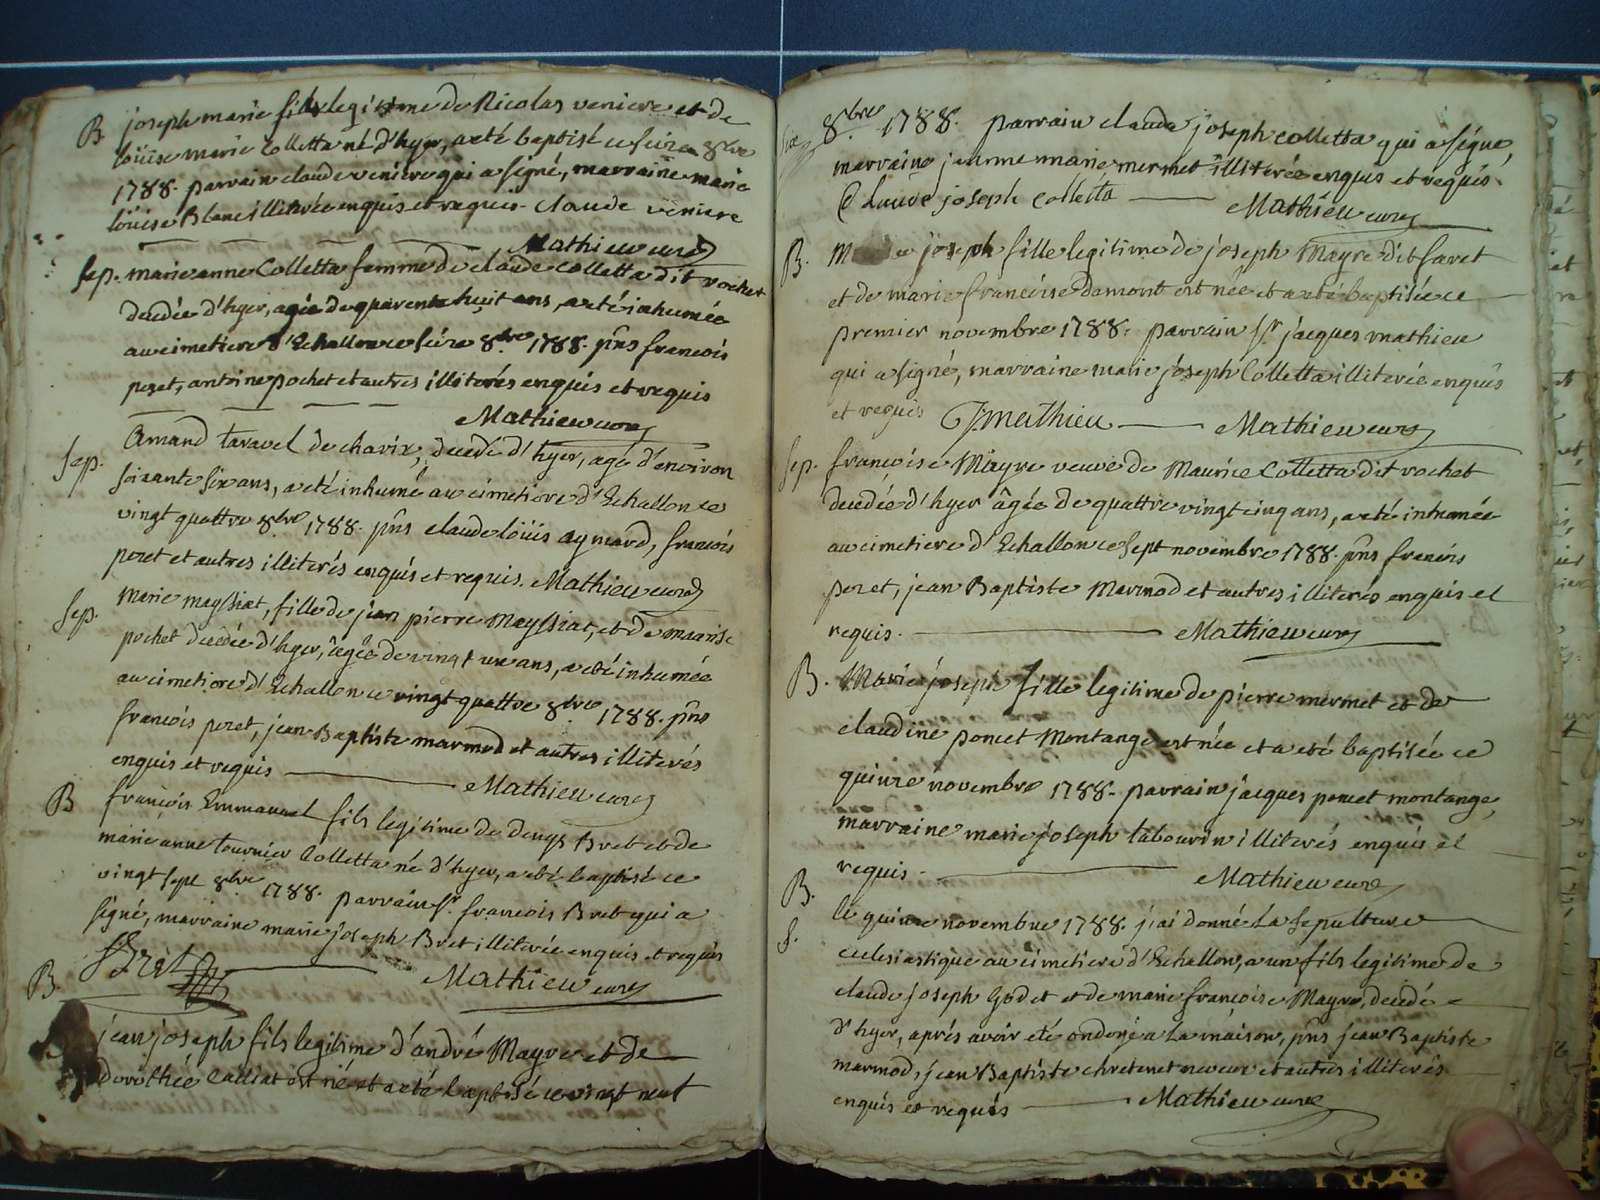 B joseph marie fils legitime de Nicolas veniere et de
loüise marie Colletta né d'hyer, a eté baptisé ce seize 8bre
1788. parrain claude veniere qui a signé, marraine marie
loüise Blanc illiterée enquis et requis. claude veniere
Mathieu curé
sep. marie anne Colletta femme de claude colletta dit rochet
decedée d'hyer, agée de quarente huit ans, a eté inhumée
au cimetiere d'Echallon ce seize 8bre 1788. pñs francois
peret, antoine pochet et autres illiterés enquis et requis
Mathieu curé
sep. Amand taravel de charix, decedé d'hyer, agé d'environ
soixante six ans, a eté inhumé au cimetiere d'Echallon ce
vingt quattre 8bre 1788. pñs claude loüis aymard, francois
peret et autres illiterés enquis et requis. Mathieu curé
sep. Marie mayssiat, fille de jean pierre Mayssiat, et de marie
pochet decedée d'hyer, agée de vingt un ans, a eté inhumée
au cimetiere d'Echallon ce vingt quattre 8bre 1788. pñs
francois peret, jean Baptiste marmod et autres illiterés
enquis et requis Mathieu curé
B françois Emmanuel fils legitime de denys Bret et de
marie anne tournier Colletta né d'hyer, a eté baptisé ce
vingt sept 8bre 1788. parrain sr. francois Bret qui a
signé, marraine marie joseph Bret illiterée enquis et requis
Bret Mathieu curé
B. jean joseph fils legitime d'andré Mayre et de
dorothée calliat est né et a eté baptisé ce vingt neuf
8bre 1788. parrain claude joseph colletta qui a signé,
marraine jeanne marie mermet illiterée enquis et requis.
Claude joseph colletta Mathieu curé
B. joseph fille legitime de joseph Mayre dit favet
et de marie francoise damont est née et a eté baptisée ce
premier novembre 1788. parrain sr. jacques mathieu
qui a signé, marraine marie joseph Colletta illiterée enquis
et requis Jmathieu Mathieu curé
sep. françoise Mayre veuve de Maurice Colletta dit rochet
decedée d'hyer âgée de quattre vingt cinq ans, a eté inhumée
au cimetiere d'Echallon ce sept novembre 1788. pñs francois
peret, jean Baptiste Marmod et autres illiterés enquis et
requis. Mathieu curé
B. Marie joseph fille legitime de pierre mermet et de
claudine poncet Montange est née et a eté baptisée ce
quinze novembre 1788. parrain jacques poncet montange,
marraine marie joseph tabourin illiterés enquis et
requis. Mathieu curé
B. le quinze novembre 1788. j'ai donné la sepulture
S. eclesiastique au cimetiere d'Echallon, a un fils legitime de
claude joseph Godet et de marie françoise Mayre, decedé
d'hyer, aprés avoir eté ondoné a la maison, pñs jean Baptiste
marmod, jean Baptiste chretenet neveux et autres illiterés
enquis et requis Mathieu curé